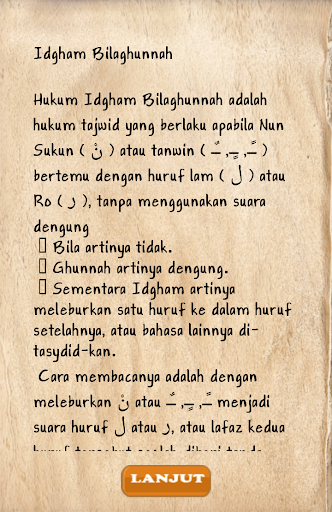 Idgham Bilaghunnah
Hukum Idgham Bilaghunnah adalah
hukum tajwid yang berlaku apabila Nun
Sukun ( نْ ) atau tanwin ( ـٌ ,ـٍ ,ـً )
bertemu dengan huruf lam ( ل ) atau
Ro ( ر ), tanpa menggunakan suara
dengung
Bila artinya tidak.
Ghunnah artinya dengung.
Sementara Idgham artinya
meleburkan satu huruf ke dalam huruf
setelahnya, atau bahasa lainnya di-
tasydid-kan.
Cara membacanya adalah dengan
meleburkan نْ atau ـٌ ,ـٍ ,ـً menjadi
suara huruf ل atau ر, atau lafaz kedua
LANJUT